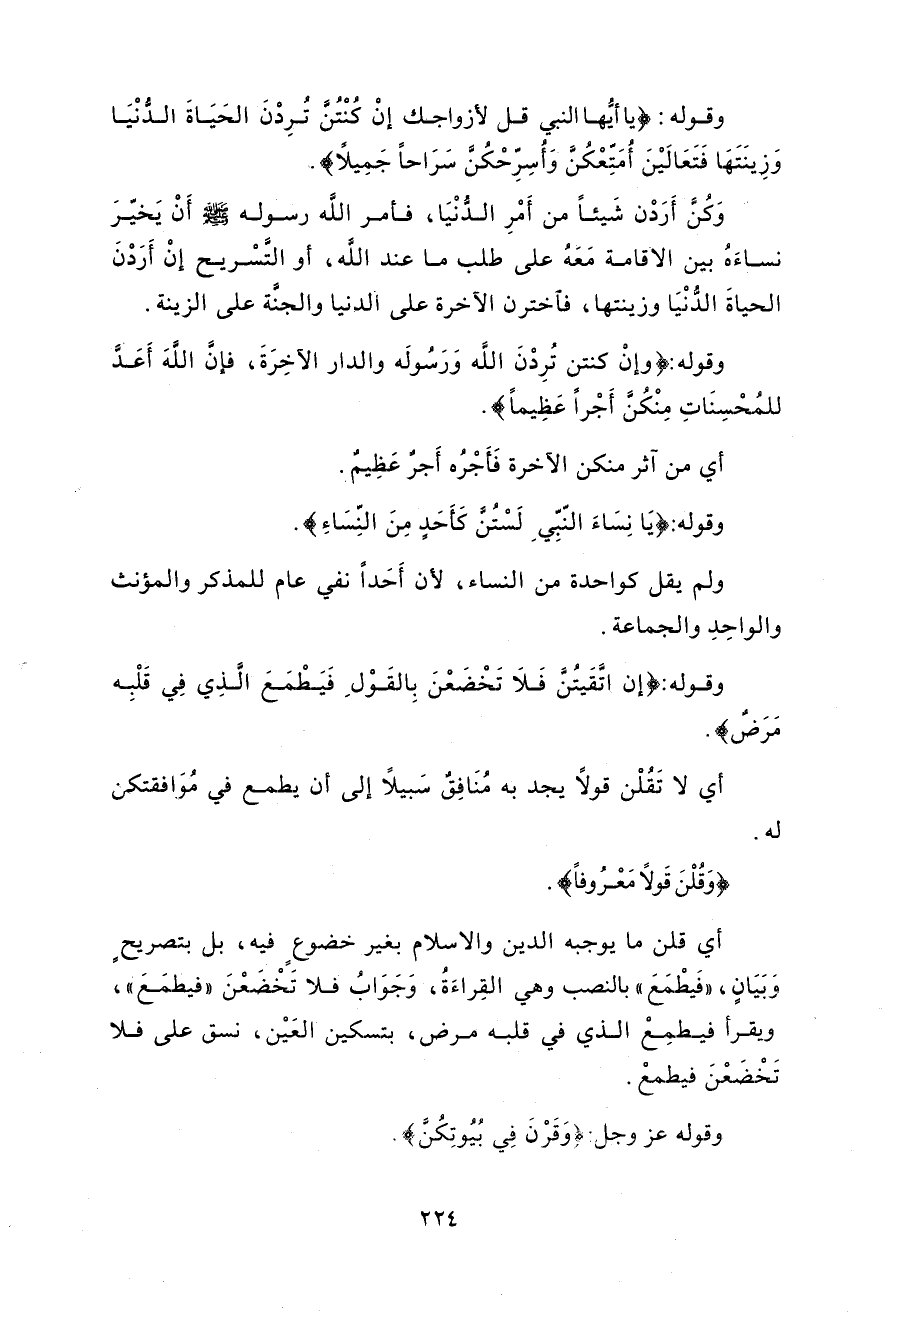 وقوله : ﴿يا أَيُّها النبي قل لأزواجك إنْ كُنْتُنَّ تُرِدْنَ الحَيَاةَ الدُّنْيَا
وَزِينَتَهَا فَتَعَالَيْنَ أُمَتِّعْكُنَّ وَأُسَرِّحْكُنَّ سَرَاحاً جَمِيلاً﴾.
وَكُنَّ أَرَدْن شَيئاً من أَمْرِ الدُّنْيَا، فأمر اللَّه رسوله ﷺ أَنْ يَخيِّرَ
نساءَهُ بين الاقامة مَعَهُ على طلب ما عند اللَّه، أو التَّسْريح إنْ أَرَدْنَ
الحياةَ الدُّنْيَا وزينتها، فآخترن الآخرة على الدنيا والجنَّة على الزينة .
وقوله:﴿وإنْ كنتن تُرِدْنَ اللَّه وَرَسُولَه والدار الآخِرَةَ، فإنَّ اللَّهَ أَعَدَّ
للمُحْسِنَاتِ مِنْكُنَّ أَجْراً عَظِيماً﴾.
أي من آثر منكن الآخرة فَأَجْرُه أَجرٌ عَظِيمٌ.
وقوله:﴿يَا نِسَاءَ النَّبِّي لَسْتُنَّ كَأَحَدٍ مِنَ النِّسَاءِ﴾.
ولم يقل كواحدة من النساء، لأن أَحَداً نفي عام للمذكر والمؤنث
والواحِدِ والجماعة .
وقوله:﴿إن اتَّقَيتُنَّ فَلا تَخْضَعْنَ بِالقَوْلِ فَيَطْمَعَ الَّذِي فِي قَلْبِه
مَرَضٌ﴾.
أي لا تَقُلْن قولاً يجد به مُنَافِقٌ سَبيلاً إلى أن يطمع في مُوَافقتكن
له .
﴿وَقُلْنَ قَولاً مَعْرُوفاً﴾.
أي قلن ما يوجبه الدين والاسلام بغير خضوعٍ فيه، بل بتصريحٍ
وَبَيَانٍ، «فَيطْمَعَ» بالنصب وهي القِراءَةُ، وَجَوَابُ فلا تَخْضَعْنَ «فيطمَعَ»،
ويقرأ فيطمِعْ الذي في قلبه مرض، بتسكين العَيْن، نسق على فلا
تَخْضَعْنَ فيطمعْ .
وقوله عز وجل:﴿وَقَرْنَ فِي بُيُوتِكُنَّ﴾.
٢٢٤